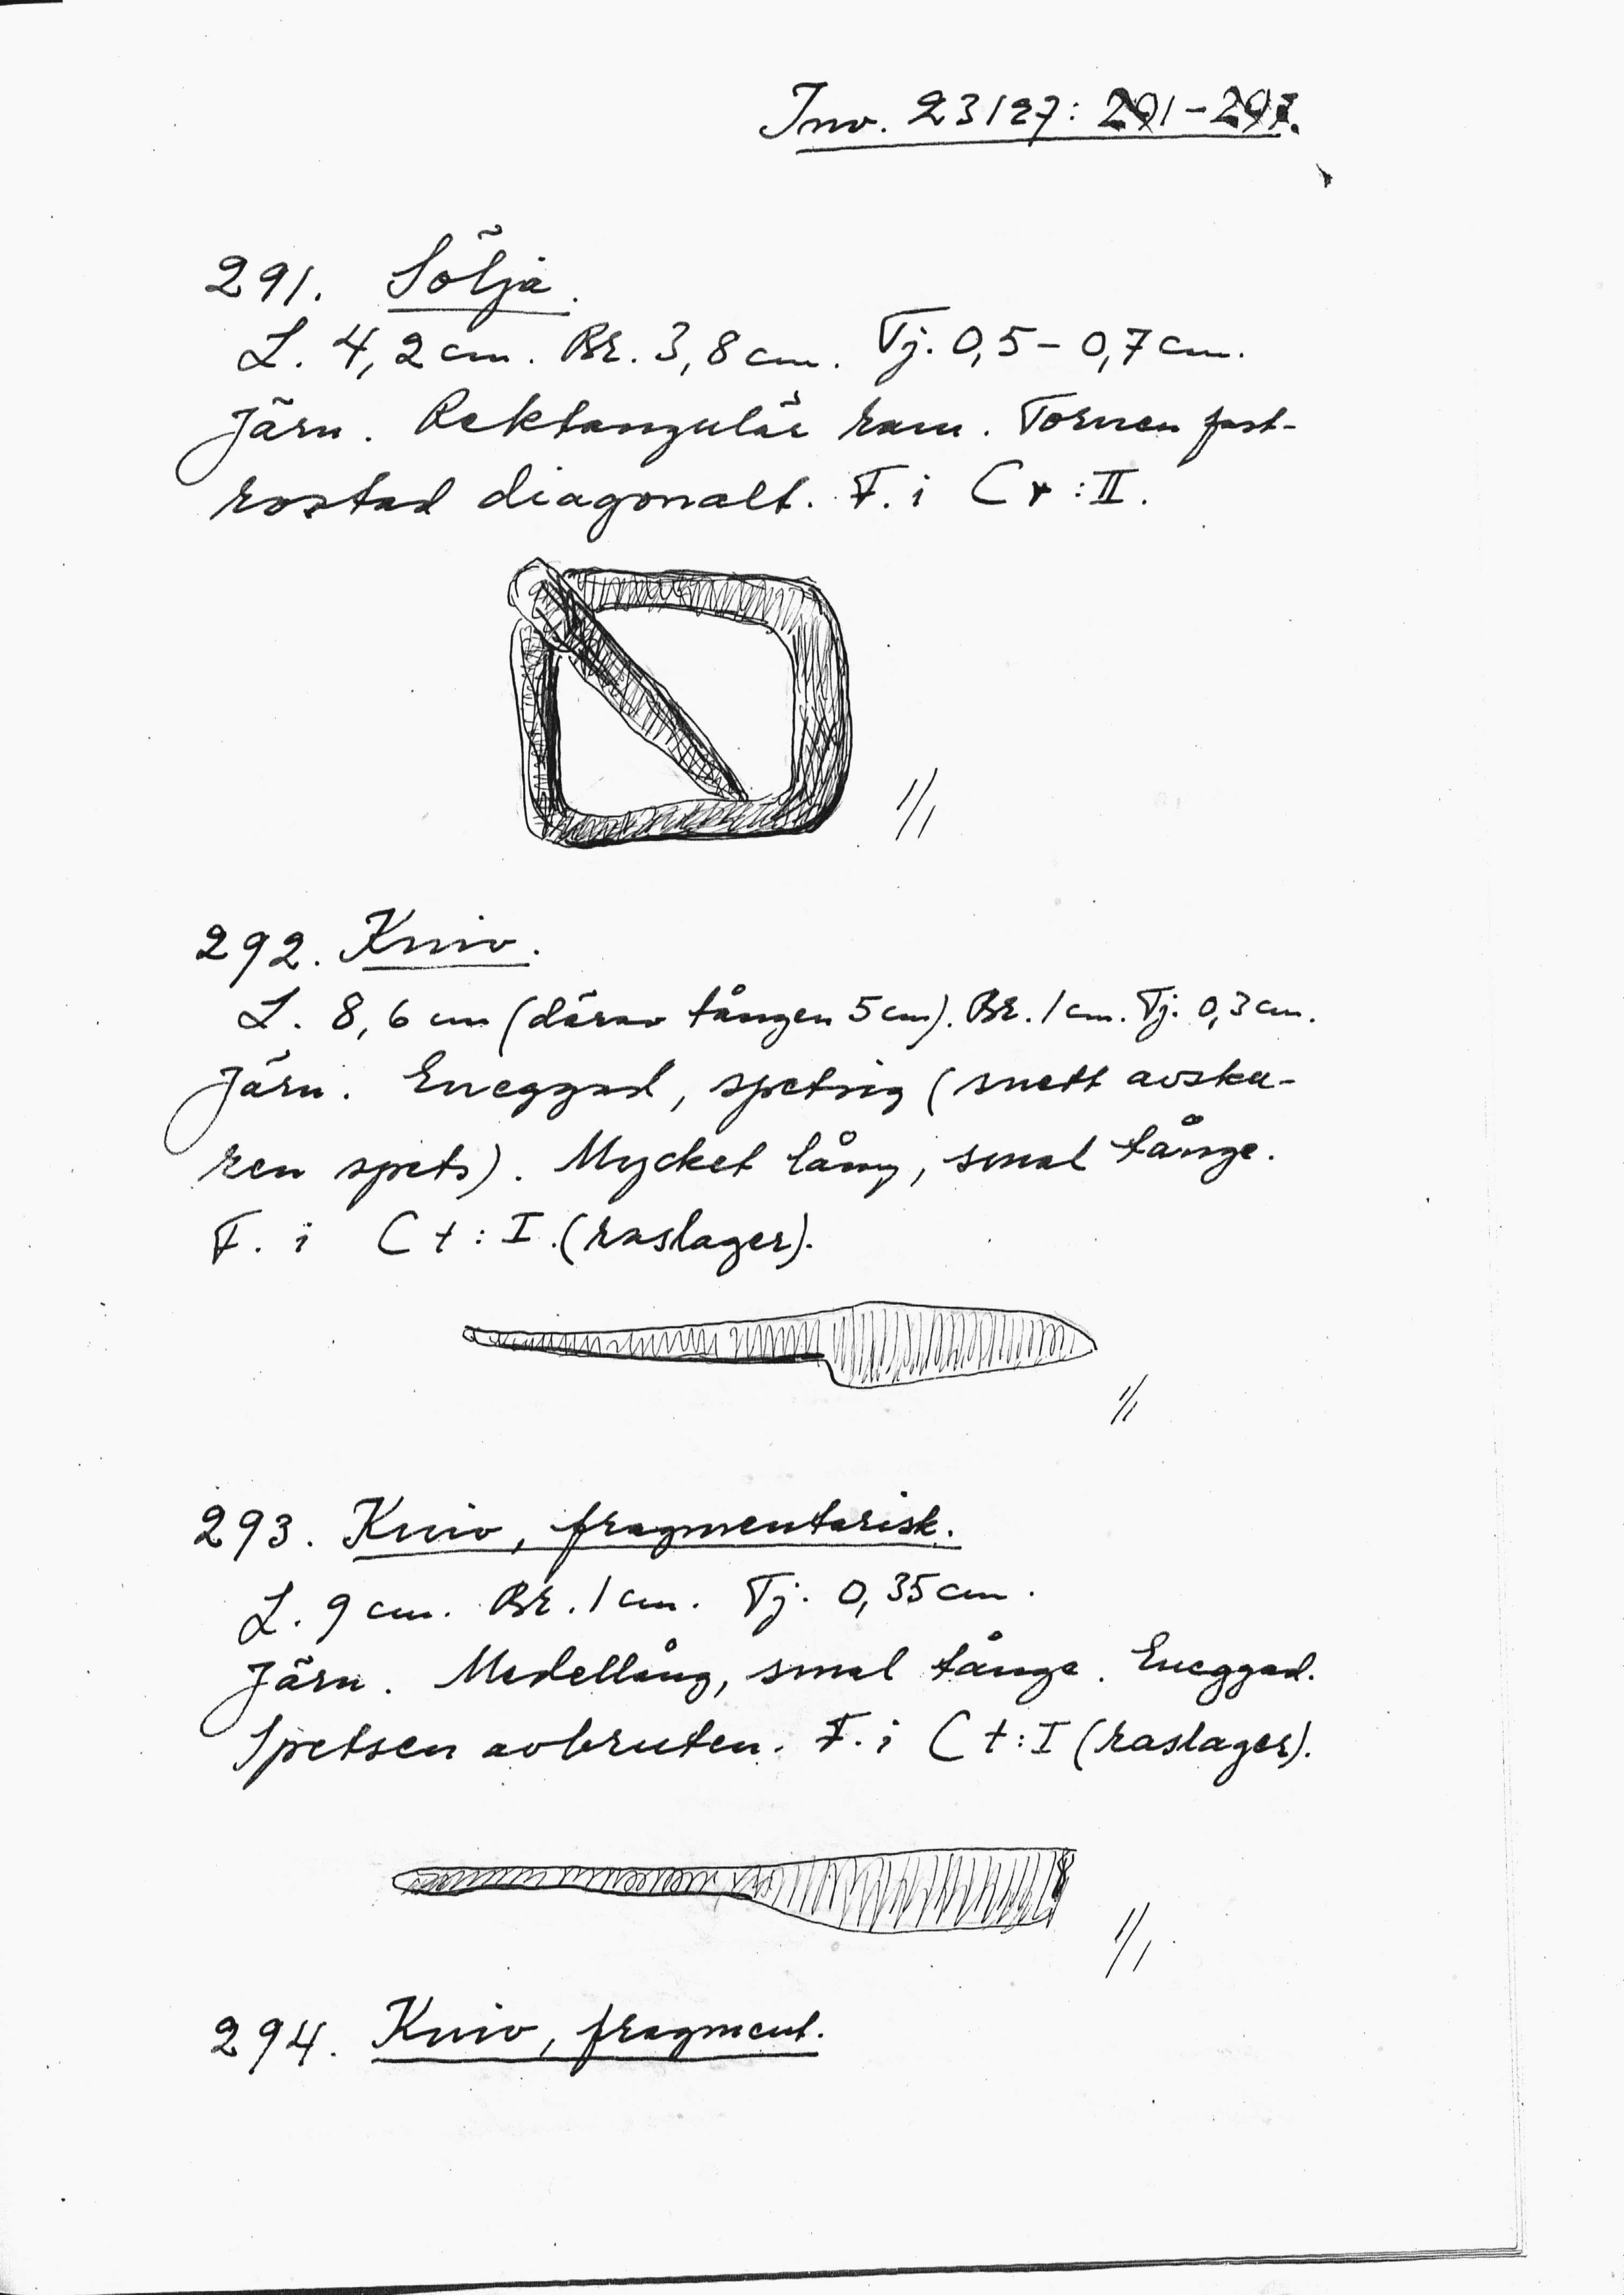 Inv. 23127: 291-297.
291. Sölja.
L. 4,2 cm. Br. 3,8 cm. Tj. 0,5 - 0,7 cm.
Järn. Rektangulär ram. Tornen fast-
rostad diagonalt. F. i C r : II.
1/1
292. Kniv.
L. 8,6 cm (därav tången 5 cm). Br. 1 cm. Tj. 0,3 cm.
Järn. Eneggad, spetsig (snett avsku-
ren spets). Mycket lång, smal tånge.
F. i C t : I. (raslager).
1/1
293. Kniv, fragmentarisk.
L. 9 cm. Br. 1 cm. Tj. 0,35 cm.
Järn. Medellång, smal tånge. Eneggad.
Spetsen avbruten. F. i C t : I (raslager).
1/1
294. Kniv, fragment.